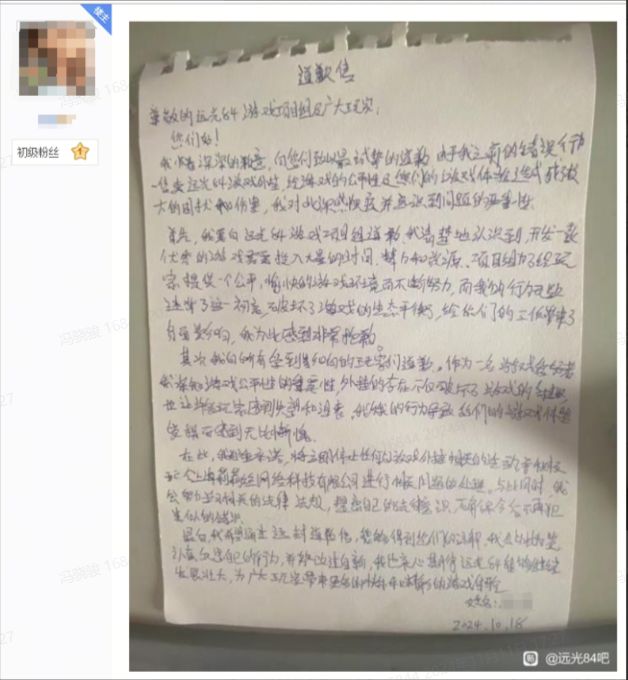 楼主
初级粉丝 1
道歉信
尊敬的远光84游戏项目组及广大玩家：
您们好！
我怀着深深的歉意，向您们致以最诚挚的道歉 由于我之前的错误行为
远光84游戏外挂，给游戏的公平性及您们的游戏体验造成了较
大的困扰和伤害，我对此深感愧疚并意识到问题的严重性
首先，我要向远光84游戏项目组道歉，我清楚地认识到，开发一款
优秀的游戏需要投入大量的时间、精力和资源，项目组为了给玩
家提供一个公平，愉快的游戏环境而不断努力，而我的行为无疑
违背了这一初衷，破坏了游戏的生态平衡，给你们的工作带来了
负面影响，我为此感到非常抱歉。
其次 我向所有受到影响的玩家们道歉。作为一名游戏
我深知游戏公平性的重要性，外挂的存在不仅破坏了游戏的
也让许多玩家感到失望和沮丧，我的行为 给你们的游戏体验
感到无比惭愧
在此，我郑重承诺，将立即停止任何与游戏外挂相关的活动
上海 网络科技有限公司进行相关问题的处理，与此同时，我
会 相关的法律法规，提高自己的法律意识，确保今后不再犯
类似的错误
最后，我希望通过这封道歉信，能够得到你们的谅解，我会
自己的行为，并 改过自新，我也衷心期待远光84能够
发展壮大，为广大玩家带来更多的快乐和精彩的游戏体验
姓名：
2024.10.18
@远光84吧